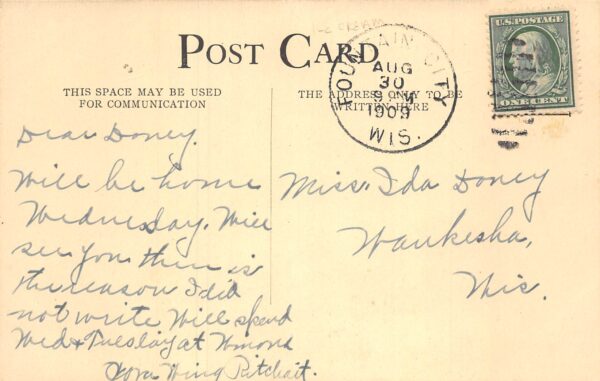 POST CARD
THIS SPACE MAY BE USED
FOR COMMUNICATION
THE ADDRESS ONLY TO BE
WRITTEN HERE
FOUNTAIN CITY
AUG
30
1909
WIS.
U.S. POSTAGE
ONE CENT
Dear Doney.
Will be home
Wednesday. Will
see you then is
the reason I did
not write Will spend
Wed & Tuesday at
Wing
Miss. Ida Doney
Waukesha,
Wis.